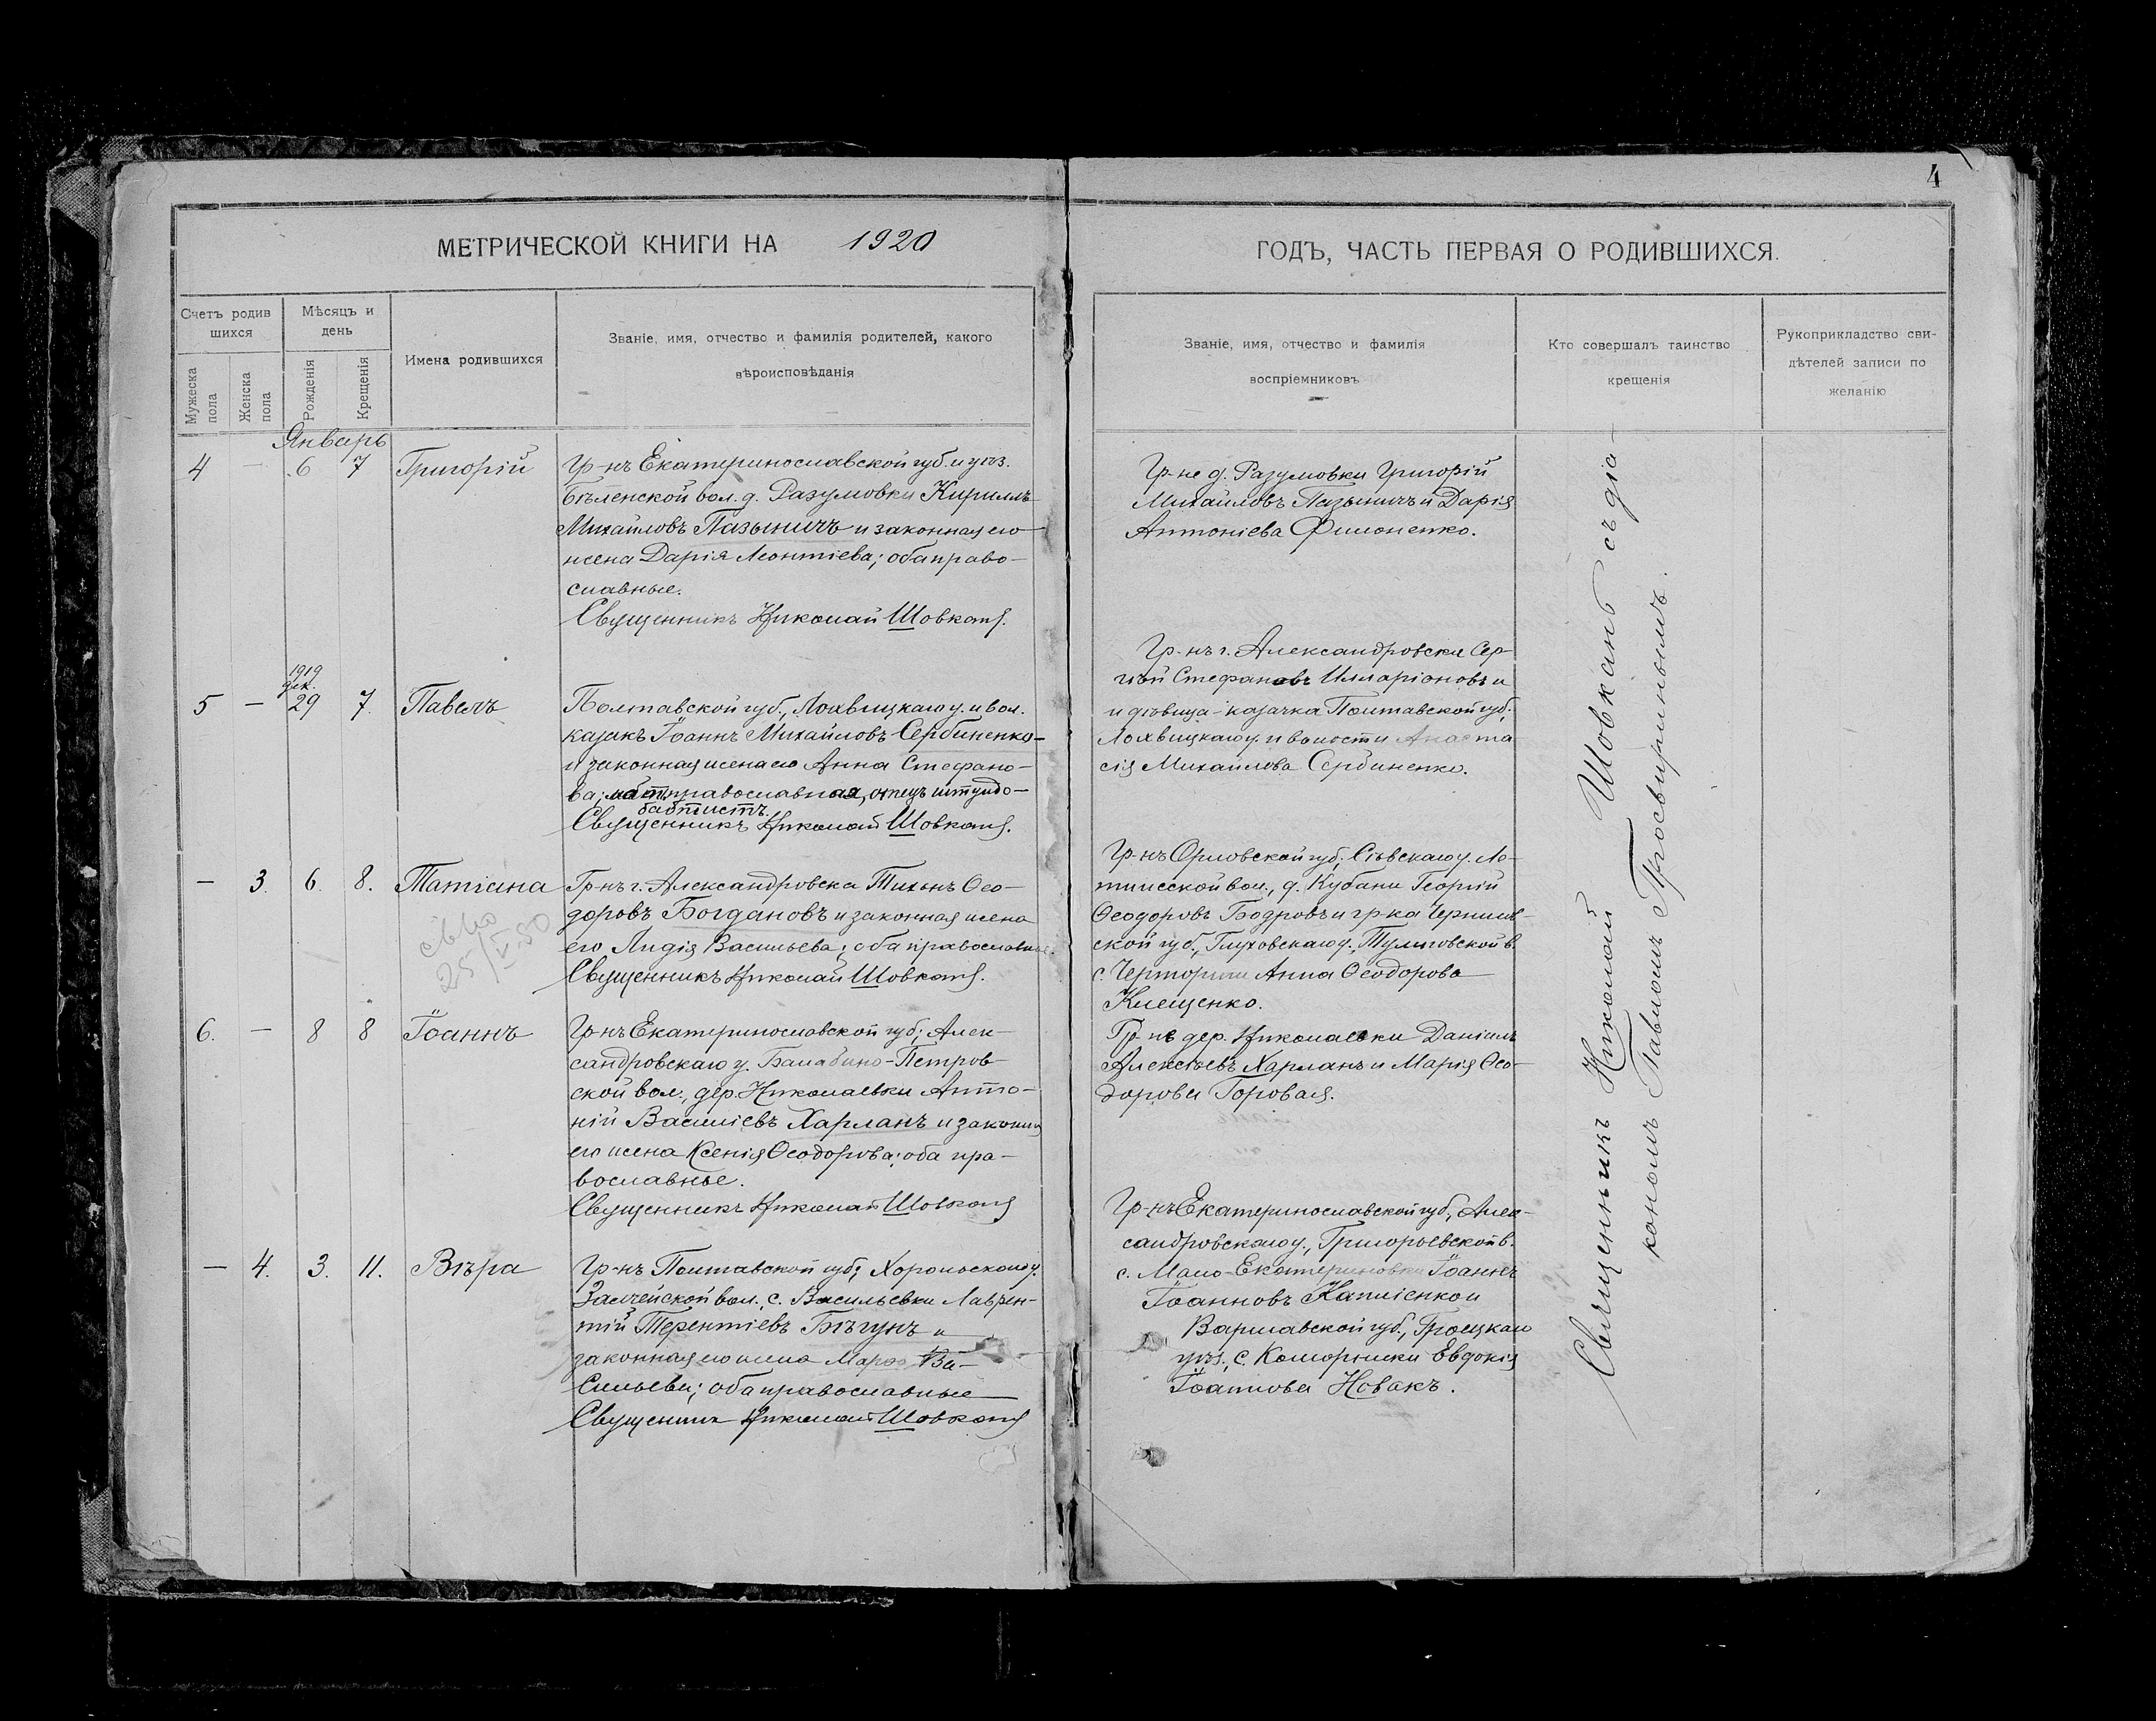 4
МЕТРИЧЕСКОЙ КНИГИ НА 1920
ГОДЪ, ЧАСТЬ ПЕРВАЯ О РОДИВШИХСЯ.
Счетъ родив
шихся
Мужеска
пола
Женска
пола
Мѣсяцъ и
день
Рожденія
Крещенія
Имена родившихся
Званіе, имя, отчество и фамилія родителей, какого
вѣроисповѣданія
Званіе, имя, отчество и фамилія
воспріемниковъ
Кто совершалъ таинство
крещенія
Рукоприкладство сви-
дѣтелей записи по
желанію
Январь
4 — 6 7 Григорій
Гр-нъ Екатеринославской губ. и уѣз.
Бѣленской вол. д. Разумовки Кириллъ
Михайловъ Пазыничъ и законная его
жена Дарія Леонтіева; оба право-
славные.
Священникъ Николай Шовкань.
Гр-не д. Разумовки Григорій
Михайловъ Пазыничъ и Дарія
Антоніева Филоненко.
1919
дек.
5 — 29 7. Павелъ
Полтавской губ., Лохвицкаго у. и вол.
казакъ Іоаннъ Михайловъ Сербиненко
и законная жена его Анна Стефано-
ва; мать православная, отецъ штундо-
баптистъ.
Священникъ Николай Шовкань.
Гр-нъ г. Александровска Сер-
гій Стефановъ Илларіоновъ и
и дѣвица-казачка Полтавской губ.,
Лохвицкаго у. и волости Анаста
сія Михайлова Сербиненко.
— 3. 6. 8. Татіана
25/V 50
Гр-нъ г. Александровска Тихонъ Ѳео-
доровъ Богдановъ и законная жена
его Лидія Васильева; оба православные.
Священникъ Николай Шовкань.
Гр-нъ Орловской губ., Сѣвскаго у.
вол., д. Кубани Георгій
Ѳеодоровъ Бодровъ и гр-ка Чернигов-
ской губ., Глуховскаго у., Тулиговской в.
с. Анна Ѳеодорова
Клещенко.
6. — 8 8 Іоаннъ
Гр-нъ Екатеринославской губ., Алек-
сандровскаго у. Балабино-Петров
ской вол., дер. Николаевки Анто-
ній Василіевъ Харланъ и законная
его жена Ксенія Ѳеодорова; оба пра-
вославные.
Священникъ Николай Шовкань
Гр-не дер. Николаевки Даніилъ
Алексѣевъ Харланъ и Марія Ѳео-
дорова Горовая.
— 4. 3. 11. Вѣра
Гр-нъ Полтавской губ., Хорольскаго у.
вол., с. Васильевки Лаврен-
тій Терентіевъ Бѣгунъ и
законная его жена Ва-
сильева; оба православные
Священникъ Николай Шовкань
Гр-нъ Екатеринославской губ., Алек-
сандровскаго у., Григорьевской в.
с. Мало-Екатериновки Іоаннъ
Іоанновъ и
Варшавской губ.,
уѣз., с. Евдокія
Іоаннова Новакъ.
Священникъ Николай Шовкань съ діа-
кономъ Павломъ Просвирнинымъ.